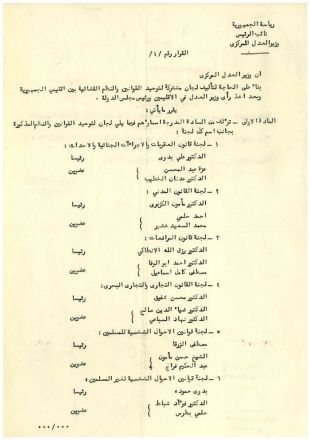 رياسة الجمهورية
نائب الرئيس
وزير العدل المركزى
القرار رقم /١/
ان وزير العدل المركزى
بناء على الحاجة لتأليف لجان مشتركة لتوحيد القوانين والنظم القضائية بين اقليمي الجمهورية
وبعد اخذ رأى وزير العدل في الاقليمين ورئيس مجلس الدولة .
يقرر مايأتي :
المادة الاولى - تؤلف من السادة المدرجة اسماؤهم فيما يلي لجان لتوحيد القوانين والنظم المذكورة
بجانب اسم كل لجنة :
١ - لجنة قانون العقوبات والاجراءات الجنائية والاحداث :
الدكتور علي بدوى رئيسا
عزة عبد المحسن
الدكتور عدنان الخطيب
عضوين
٢ - لجنة القانون المدني :
الدكتور مأمون الكزبرى رئيسا
احمد حلمي
محمد السعيد خضير
عضوين
٣ - لجنة قانون المرافعات :
الدكتور رزق الله الانطاكي رئيسا
الدكتور احمد ابو الوفا
مصطفى كامل اسماعيل
عضوين
٤ - لجنة القانون التجارى والتجارى البحرى :
الدكتور محسن شفيق رئيسا
الدكتور ضياء الدين صالح
الدكتور نهاد السباعي
عضوين
٥ - لجنة قوانين الاحوال الشخصية للمسلمين :
مصطفى الزرقا رئيسا
الشيخ حسن مأمون
عبد الحكيم فراج
عضوين
٦ - لجنة قوانين الاحوال الشخصية لغير المسلمين :
بدوى حموده رئيسا
الدكتور فؤاد شباط
حلمي بطرس
عضوين
٠٠٠/٠٠٠